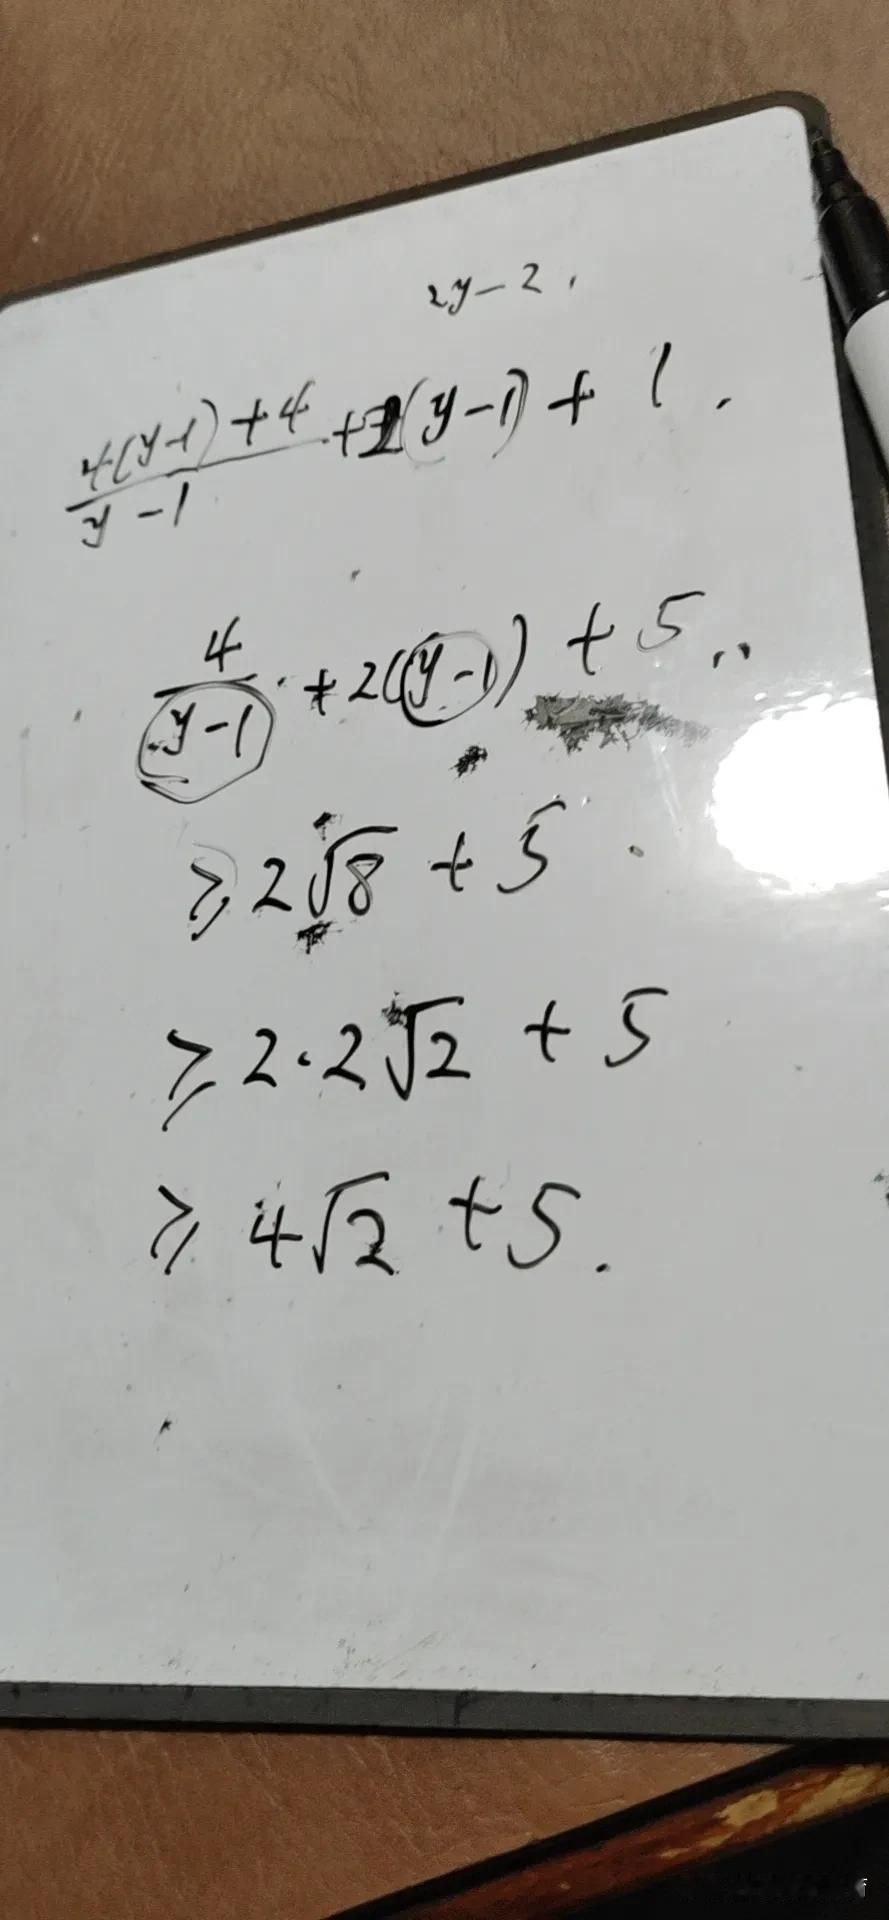 2y-2.
\frac{4(y-1)+4}{y-1}+2(y-1)+1.
\frac{4}{y-1}+2(y-1)+5..
≥2√8+5.
≥2·2√2+5
≥4√2+5.